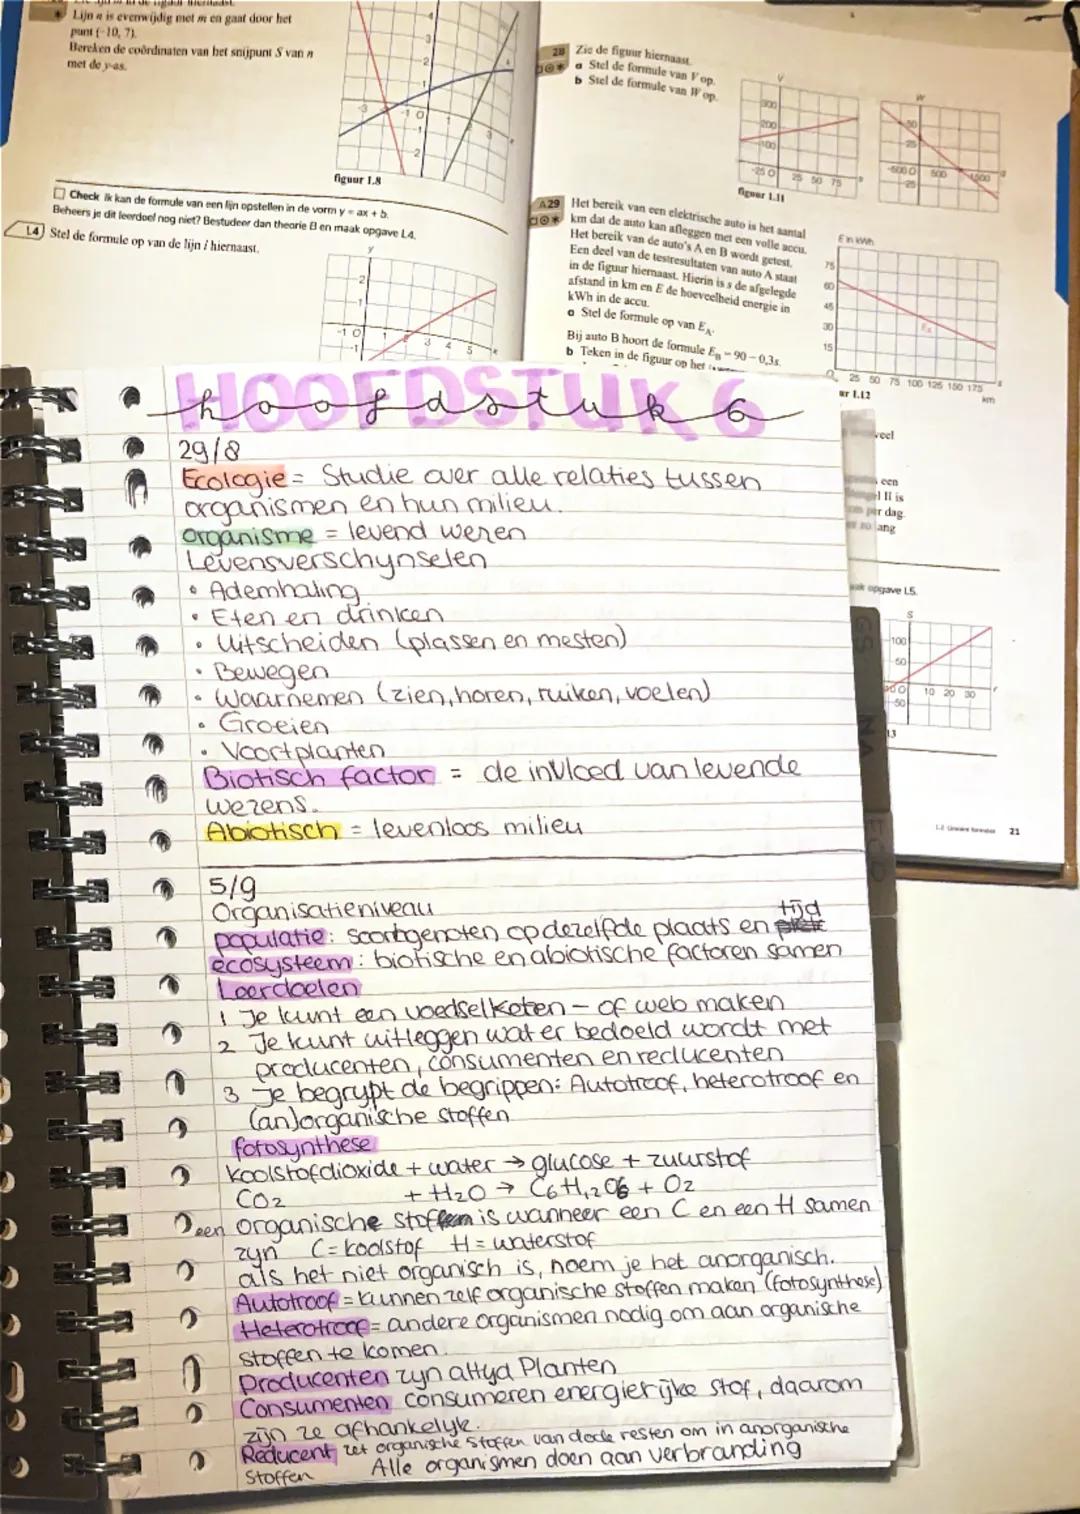 Lijn n is evenwijdig met m en gaat door het
punt (-10, 7).
Bereken de coördinaten van het snijpunt S van n
met de y-as.
figuur 1.8
Check Ik kan de formule van een lijn opstellen in de vorm y = ax + b.
Beheers je dit leerdoel nog niet? Bestudeer dan theorie B en maak opgave L4.
L4 Stel de formule op van de lijn l hiernaast.
28 Zie de figuur hiernaast.
a Stel de formule van V op.
b Stel de formule van W op.
figuur 1.11
A29 Het bereik van een elektrische auto is het aantal
km dat de auto kan afleggen met een volle accu.
Het bereik van de auto's A en B wordt getest.
Een deel van de testresultaten van auto A staat
in de figuur hiernaast. Hierin is s de afgelegde
afstand in km en E de hoeveelheid energie in
kWh in de accu.
a Stel de formule op van E_A.
Bij auto B hoort de formule E_B = 90 - 0,3s.
b Teken in de figuur op het
E in kWh
75
60
45
30
15
0 25 50 75 100 125 150 175 s
km
ur 1.12
veel
een
II is
per dag.
lang
opgave L5.
S
100
50
10 20 30
-50
13
21
HOOFDSTUK 6
hoofdstuk 6
29/8
Ecologie = Studie over alle relaties tussen
organismen en hun milieu.
organisme = levend wezen
Levensverschynselen
• Ademhaling
• Eten en drinken
• Uitscheiden (plassen en mesten)
• Bewegen
• Waarnemen (zien, horen, ruiken, voelen)
• Groeien
• Voortplanten
Biotisch factor = de invloed van levende
wezens.
Abiotisch = levenloos milieu
5/9
Organisatieniveau
tijd
populatie: soortgenoten op dezelfde plaats en
ecosysteem: biotische en abiotische factoren samen
Leerdoelen
1 Je kunt een voedselketen - of web maken
2 Je kunt uitleggen wat er bedoeld wordt met
producenten, consumenten en reducenten
3 Je begrypt de begrippen: Autotroof, heterotroof en
(an)organische stoffen
fotosynthese
koolstofdioxide + water → glucose + zuurstof
CO2 + H2O → C6H12O6 + O2
een organische stof is wanneer een C en een H samen
zyn C = koolstof H = waterstof
als het niet organisch is, noem je het anorganisch.
Autotroof = kunnen zelf organische stoffen maken (fotosynthese)
Heterotroof = andere organismen nodig om aan organische
stoffen te komen.
Producenten zyn altyd Planten
Consumenten consumeren energierijke stof, daarom
zijn ze afhankelyk.
Reducent zet organische stoffen van dode resten om in anorganische
Stoffen Alle organismen doen aan verbranding